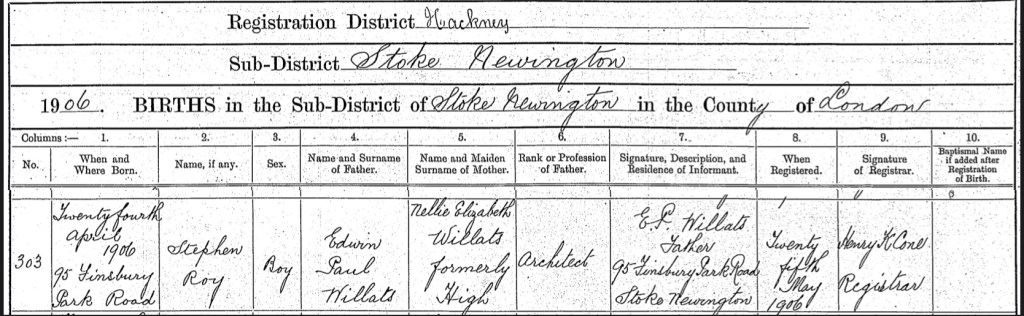 Registration District Hackney
Sub-District Stoke Newington
1906. BIRTHS in the Sub-District of Stoke Newington in the County of London
Columns:— 1. 2. 3. 4. 5. 6. 7. 8. 9. 10.
No.
When and
Where Born.
Name, if any.
Sex.
Name and Surname
of Father.
Name and Maiden
Surname of Mother.
Rank or Profession
of Father.
Signature, Description, and
Residence of Informant.
When
Registered.
Signature
of Registrar.
Baptismal Name
if added after
Registration
of Birth.
303
Twenty fourth
April
1906
95 Finsbury
Park Road
Stephen
Roy
Boy
Edwin
Paul
Willats
Nellie Elizabeth
Willats
formerly
High
Architect
E.P. Willats
Father
95 Finsbury Park Road
Stoke Newington
Twenty
fifth
May
1906
Henry K Cone
Registrar